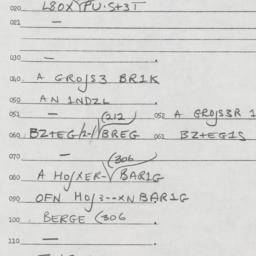 020 L80XYFU·S+3T
021 —
030 — .
040 A GROJS3 BR1K
050 AN 1NDZL .
051 — (212 052 A GROJS3R 1
060 BZ+EG/2-1/ BREG 061 BZ+EG1S
070 — (306
080 A HO/XER-√BAR1G
090 OFN HOJ3--XN BAR1G
100 BERGE (306 .
110 — .